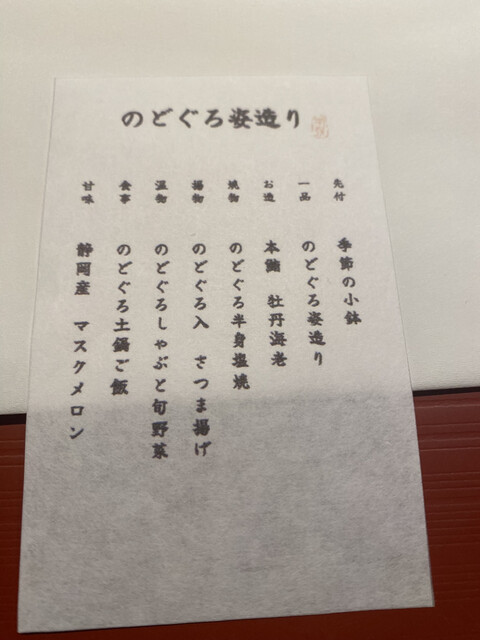 のどぐろ姿造り
先付
季節の小鉢
一品
のどぐろ姿造り
お造
本鮪 牡丹海老
焼物
のどぐろ半身塩焼
揚物
のどぐろ入 さつま揚げ
温物
のどぐろしゃぶと旬野菜
食事
のどぐろ土鍋ご飯
甘味
静岡産 マスクメロン